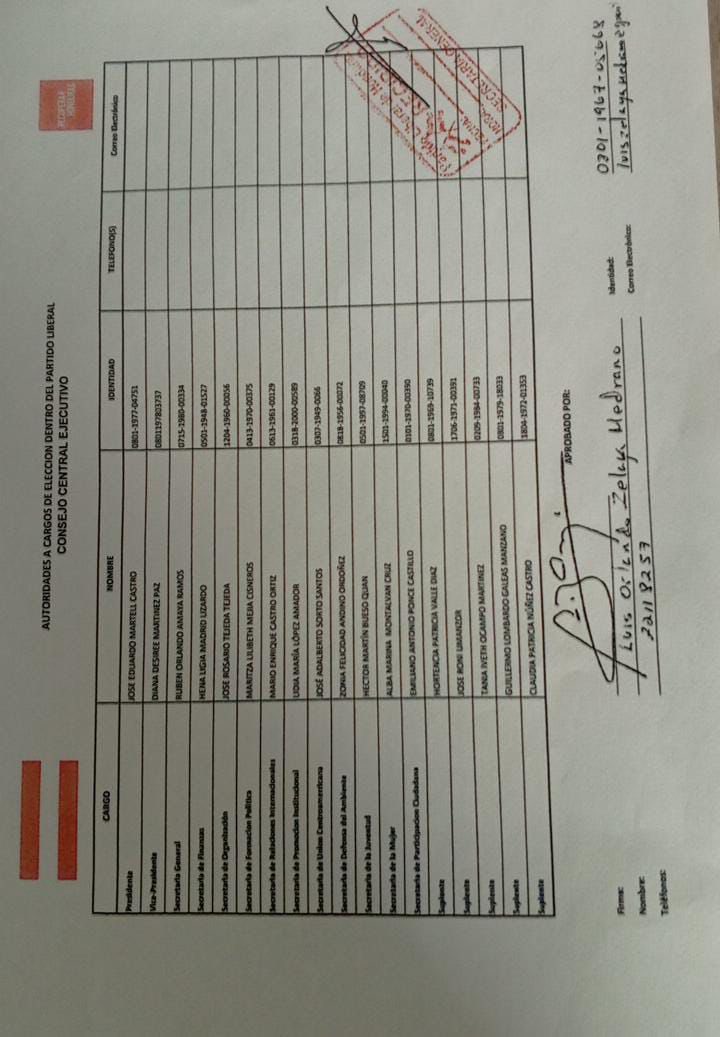 RECUPERAR HONDURAS
AUTORIDADES A CARGOS DE ELECCION DENTRO DEL PARTIDO LIBERAL
CONSEJO CENTRAL EJECUTIVO
CARGO NOMBRE IDENTIDAD TELEFONO(S) Correo Electrónico
Presidente JOSE EDUARDO MARTELL CASTRO 0801-1977-04751
Vice-Presidente DIANA DESIREE MARTINEZ PAZ 0801197803737
Secretaria General RUBEN ORLANDO AMAYA RAMOS 0715-1980-00334
Secretaria de Finanzas HENA LIGIA MADRID LIZARDO 0501-1948-01527
Secretaria de Organización JOSE ROSARIO TEJEDA TEJEDA 1204-1960-00056
Secretaria de Formacion Politica MARITZA LILIBETH MEJIA CISNEROS 0413-1970-00375
Secretaria de Relaciones Internacionales MARIO ENRIQUE CASTRO ORTIZ 0613-1961-00129
Secretaria de Promocion Institucional LIDIA MARÍA LÓPEZ AMADOR 0318-2000-00589
Secretaria de Union Centroamericana JOSÉ ADALBERTO SORTO SANTOS 0307-1949-0066
Secretaria de Defensa del Ambiente ZONIA FELICIDAD ANDINO ORDOÑEZ 0818-1956-00072
Secretaria de la Juventud HECTOR MARTÍN BUESO QUAN 0501-1997-08709
Secretaria de la Mujer ALBA MARINA MONTALVAN CRUZ 1501-1994-00040
Secretaria de Participacion Ciudadana EMILIANO ANTONIO PONCE CASTILLO 0101-1970-00390
Suplente HORTENCIA PATRICIA VALLE DIAZ 0801-1969-10739
Suplente JOSE RONI UMANZOR 1706-1971-00391
Suplente TANIA IVETH OCAMPO MARTINEZ 0209-1984-00733
Suplente GUILLERMO LOMBARDO GALEAS MANZANO 0801-1979-18033
Suplente CLAUDIA PATRICIA NÚÑEZ CASTRO 1804-1972-01353
Partido Liberal de Honduras
SECRETARIA GENERAL
APROBADO POR:
Firma: Identidad: 0301-1967-05668
Nombre: Luis Orlando Zelaya Medrano Correo Electrónico: luiszelayamedrano@
Teléfonos: 22118253